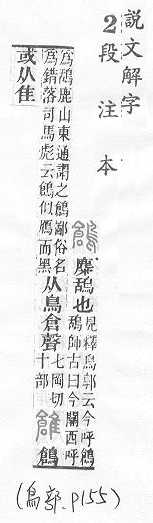 說文解字
2段注本
鶬 麋鴰也
見釋鳥郭云今呼鶬
鴰師古曰今關西呼
爲鴰鹿山東通謂之鶬鄙俗名
爲錯落司馬彪云鶬似鴈而黑
从鳥倉聲
七岡切
十部
鶬
或从隹
(鳥部.P155)